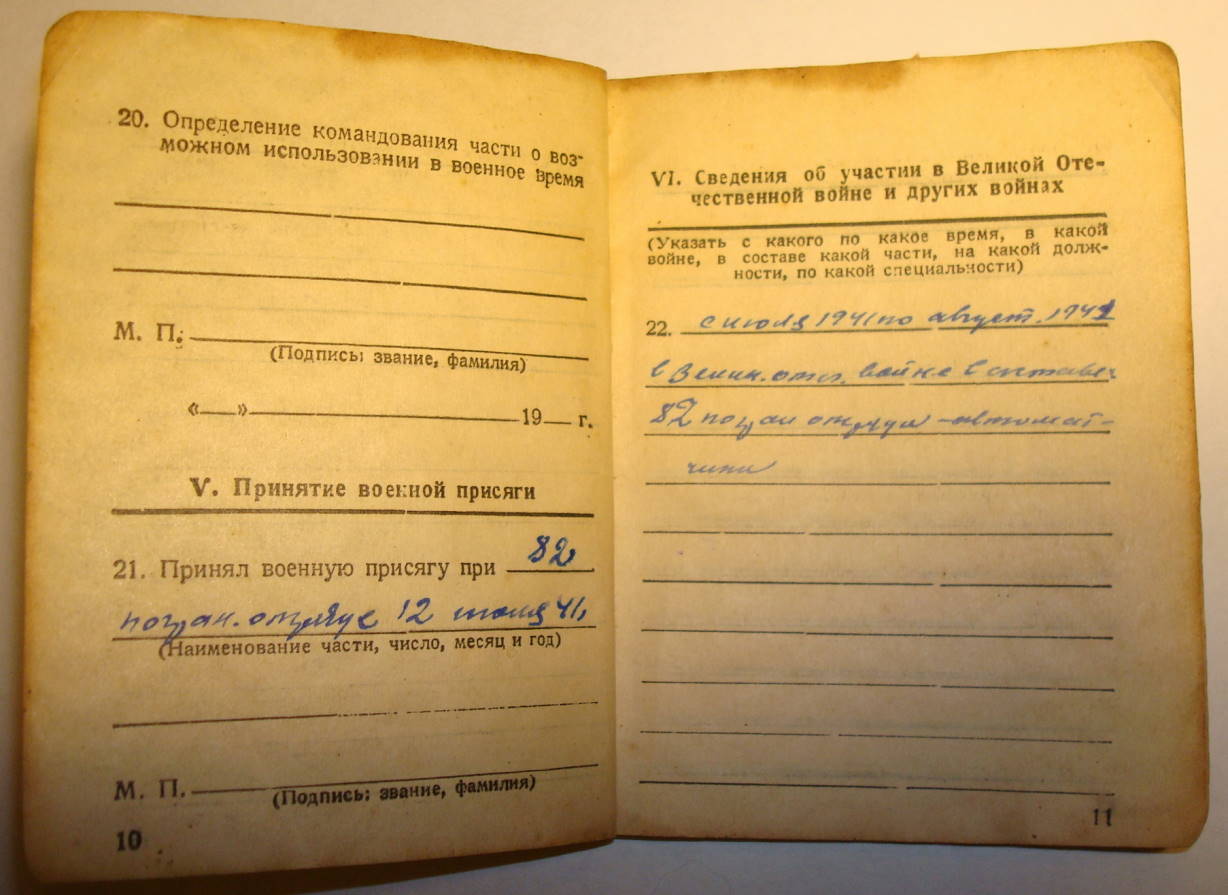 20. Определение командования части о воз-
можном использовании в военное время
М. П.
(Подпись: звание, фамилия)
«    »    19    г.
V. Принятие военной присяги
21. Принял военную присягу при 82
погран. отряде 12 июля 41,
(Наименование части, число, месяц и год)
М. П.
(Подпись: звание, фамилия)
10
VI. Сведения об участии в Великой Оте-
чественной войне и других войнах
(Указать с какого по какое время, в какой
войне, в составе какой части, на какой долж-
ности, по какой специальности)
22. с июля 1941 по август. 1941
в Велик. отеч. войне в составе
82 погран отряда - автомат-
11